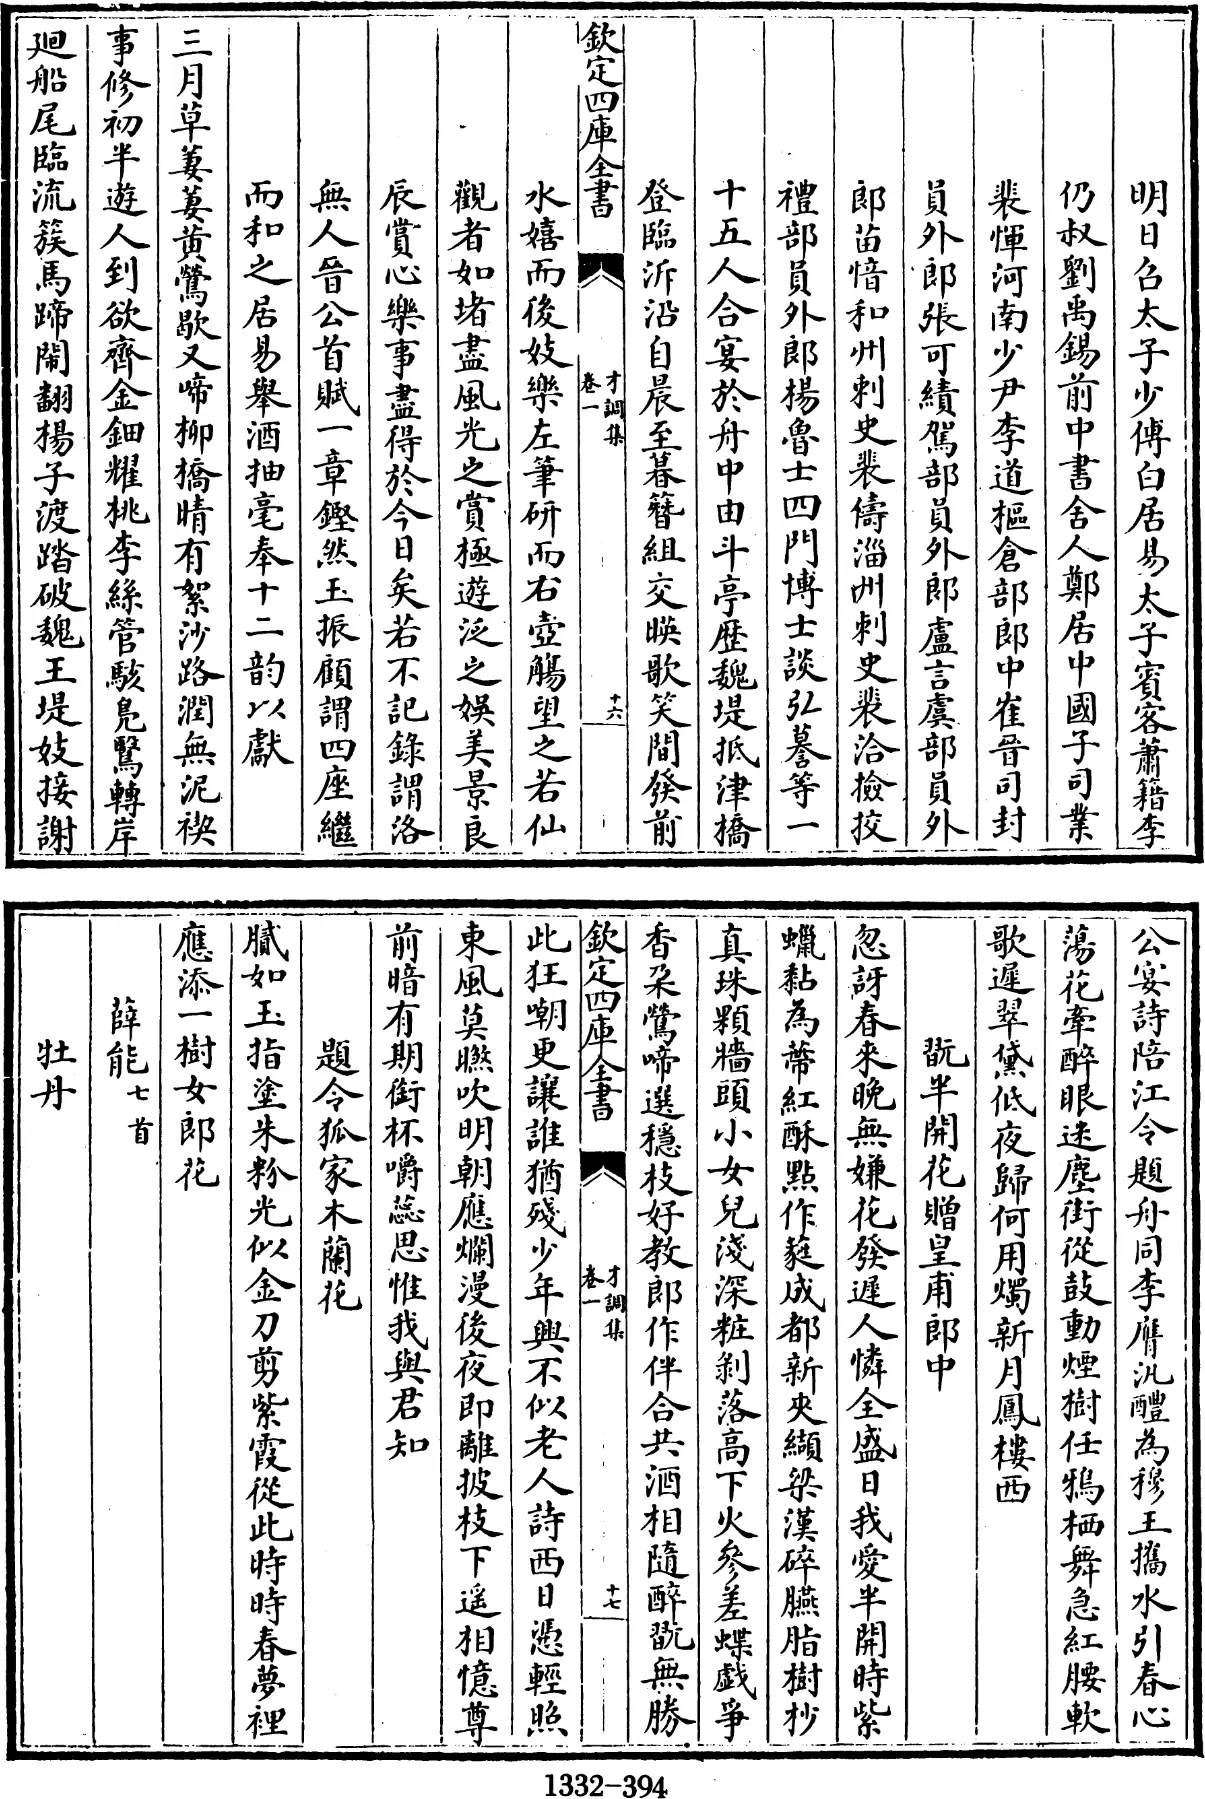 明日召太子少傅白居易太子賓客蕭籍李
仍叔劉禹錫前中書舍人鄭居中國子司業
裴惲河南少尹李道樞倉部郎中崔晉司封
員外郎張可績駕部員外郎盧言虞部員外
郎苗愔和州刺史裴儔淄州刺史裴洽撿挍
禮部員外郎楊魯士四門博士談弘謩等一
十五人合宴於舟中由斗亭歴魏堤抵津橋
登臨泝沿自晨至暮簪組交暎歌笑間發前
欽定四庫全書
才調集
卷一
十六
水嬉而後妓樂左筆硏而右壺觴望之若仙
觀者如堵盡風光之賞極遊泛之娛美景良
辰賞心樂事盡得於今日矣若不記錄謂洛
無人晉公首賦一章鏗然玉振顧謂四座繼
而和之居易舉酒抽毫奉十二韵以獻
三月草萋萋黃鶯歇又啼柳橋晴有絮沙路潤無泥禊
事修初半遊人到欲齊金鈿耀桃李絲管駭鳧鷖轉岸
廻船尾臨流簇馬蹄鬧翻楊子渡踏破魏王堤妓接謝
公宴詩陪江令題舟同李膺汎醴為穆王攜水引春心
蕩花牽醉眼迷塵街從鼓動煙樹任鴉栖舞急紅腰軟
歌遲翠黛低夜歸何用燭新月鳳樓西
翫半開花贈皇甫郎中
忽訝春來晚無嫌花發遲人憐全盛日我愛半開時紫
蠟黏為蔕紅酥點作蕤成都新夾纈梁漢碎臙脂樹杪
真珠顆牆頭小女兒淺深粧剝落高下火參差蝶戲爭
香朶鶯啼選穩枝好教郎作伴合共酒相隨醉翫無勝
欽定四庫全書
才調集
卷一
十七
此狂嘲更讓誰猶殘少年興不似老人詩西日憑輕照
東風莫㬠吹明朝應爛漫後夜即離披枝下遥相憶尊
前暗有期銜杯嚼蕊思惟我與君知
題令狐家木蘭花
膩如玉指塗朱粉光似金刀剪紫霞從此時時春夢裡
應添一樹女郎花
薛能七首
牡丹
1332-394